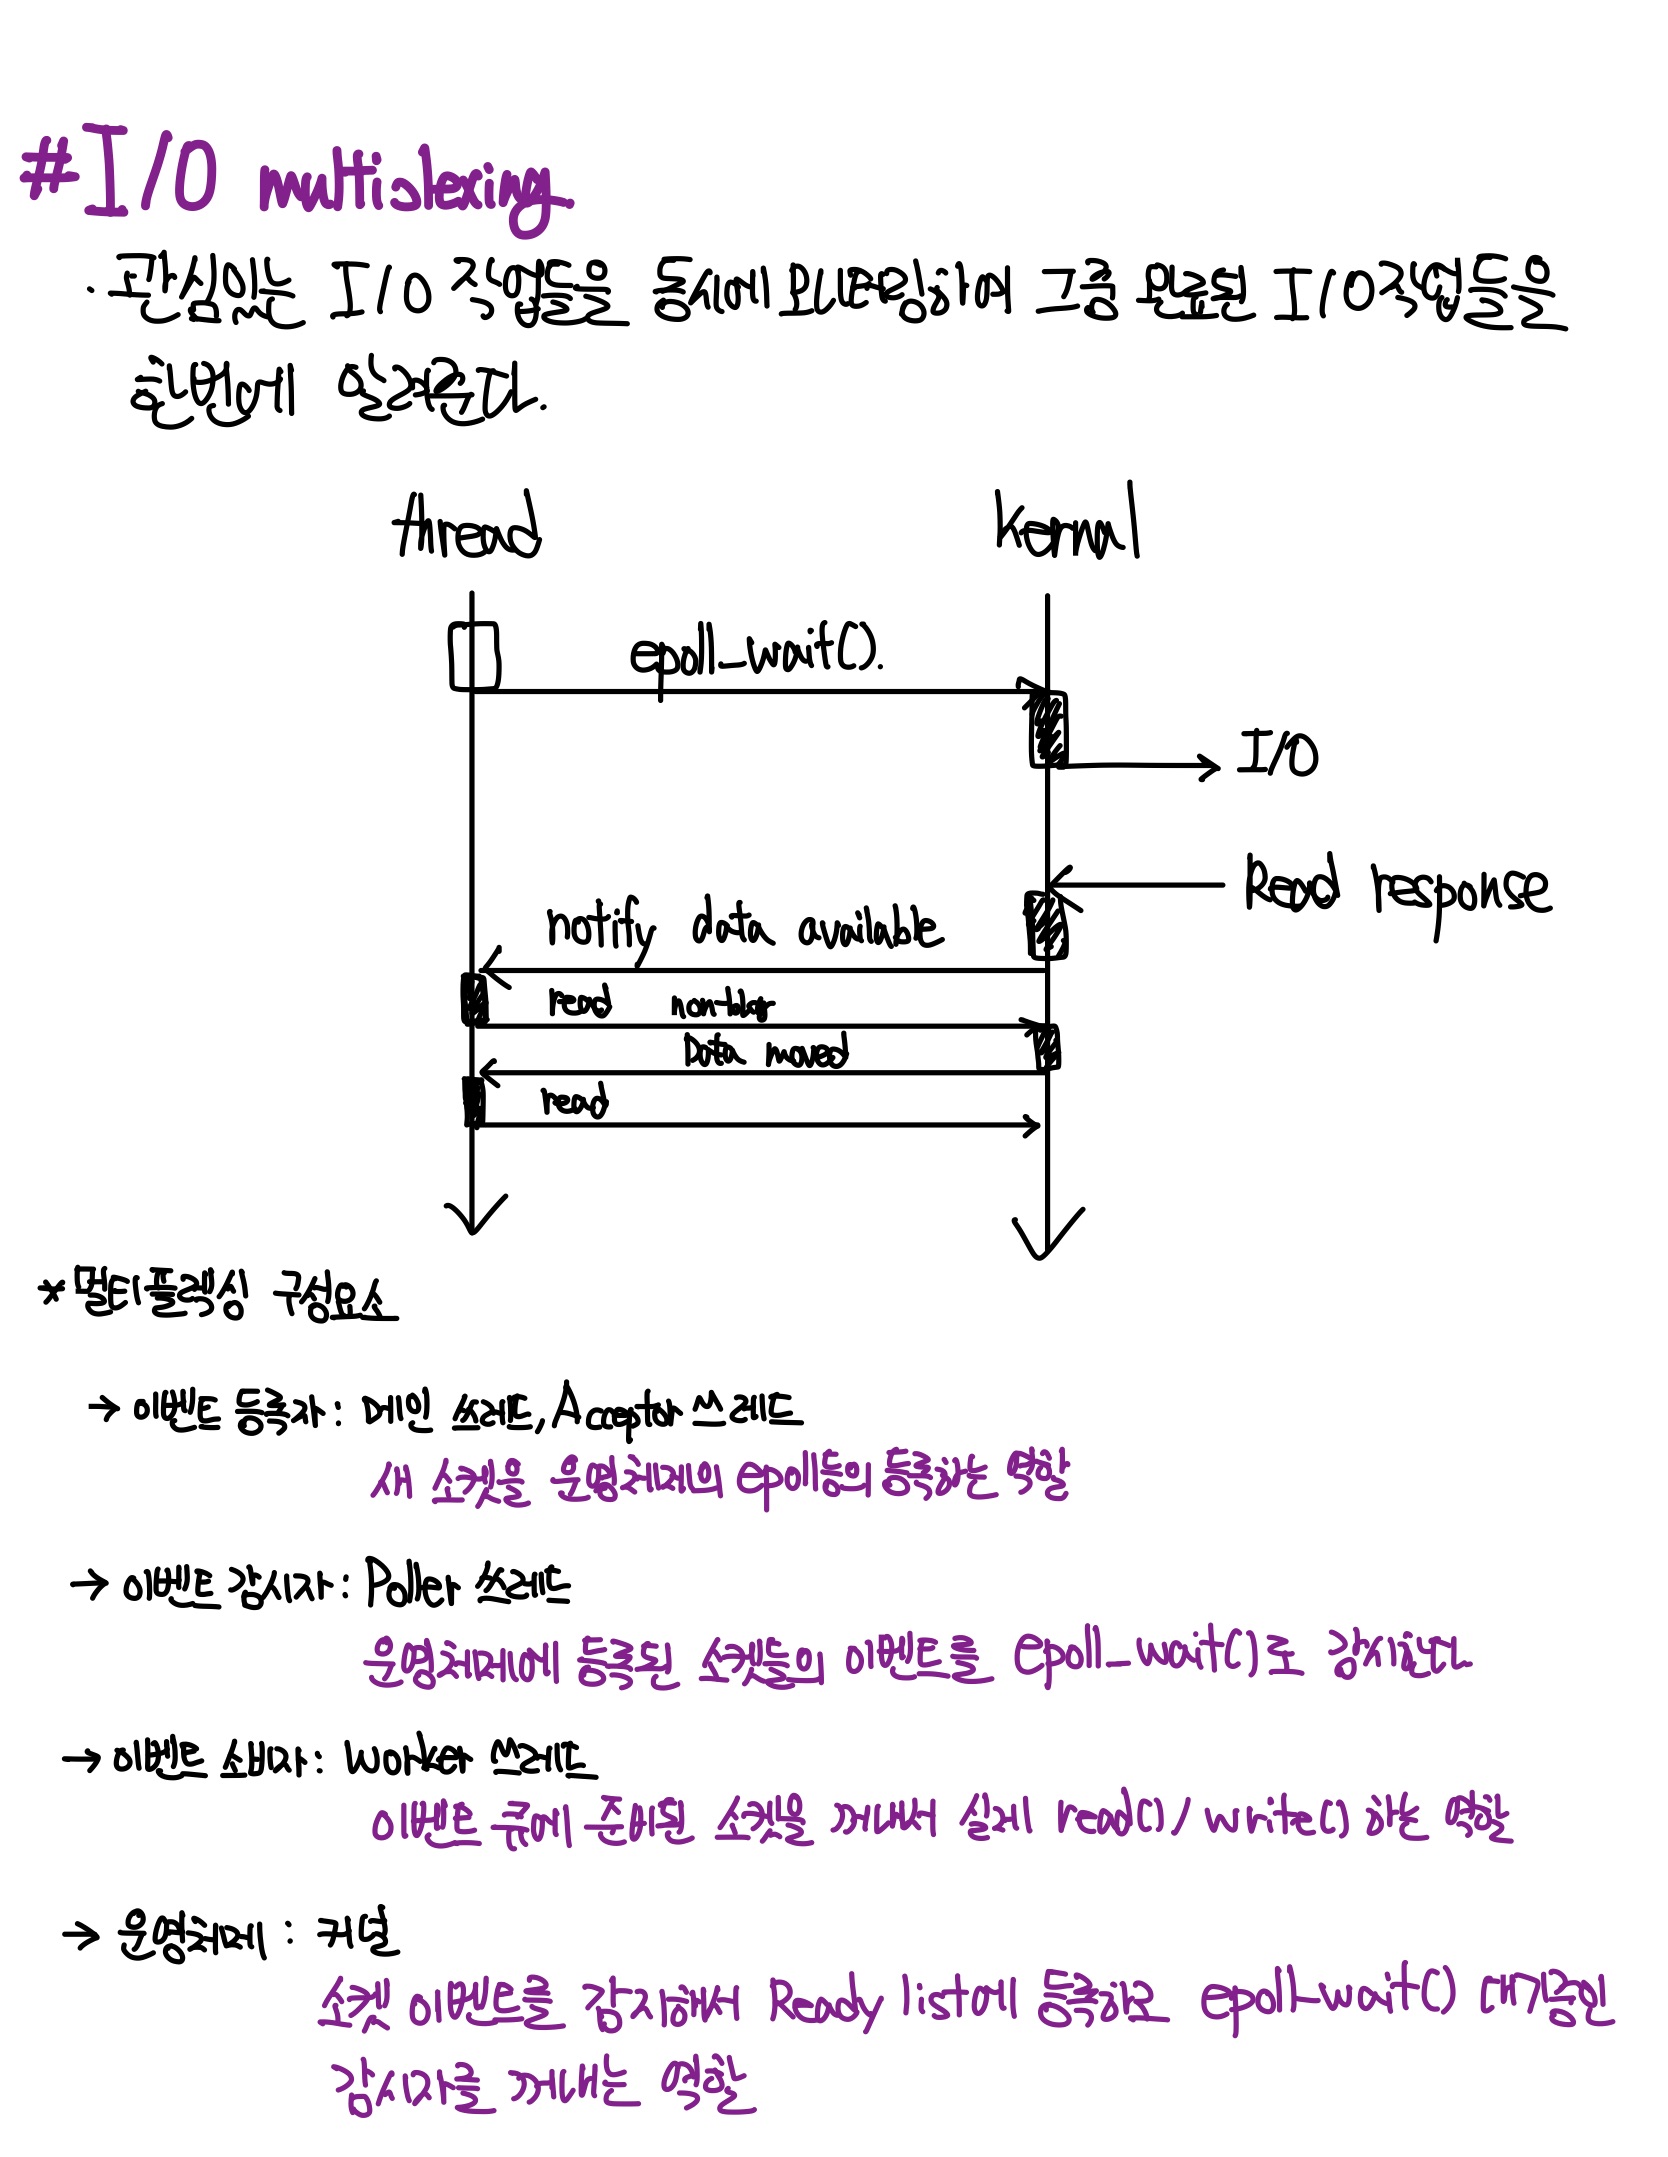 #I/O multislexing
· 관심있는 I/O 작업들을 동시에 모니터링하여 그중 완료된 I/O작업들을
한번에 알려준다.
thread
kernal
epoll_wait().
I/O
Read response
notify data available
read
Data moved
read
* 멀티플렉싱 구성요소
→ 이벤트 등록자 : 메인 쓰레드, Acceptor 쓰레드
새 소켓을 운영체제의 epoll등의 등록하는 역할
→ 이벤트 감시자 : Poller 쓰레드
운영체제에 등록된 소켓들의 이벤트를 epoll_wait()로 감시한다
→ 이벤트 소비자 : worker 쓰레드
이벤트 큐에 준비된 소켓을 꺼내서 실제 read() / write() 하는 역할
→ 운영체제 : 커널
소켓 이벤트를 감지해서 Ready list에 등록하고 epoll_wait() 대기중인
감시자를 꺼내는 역할